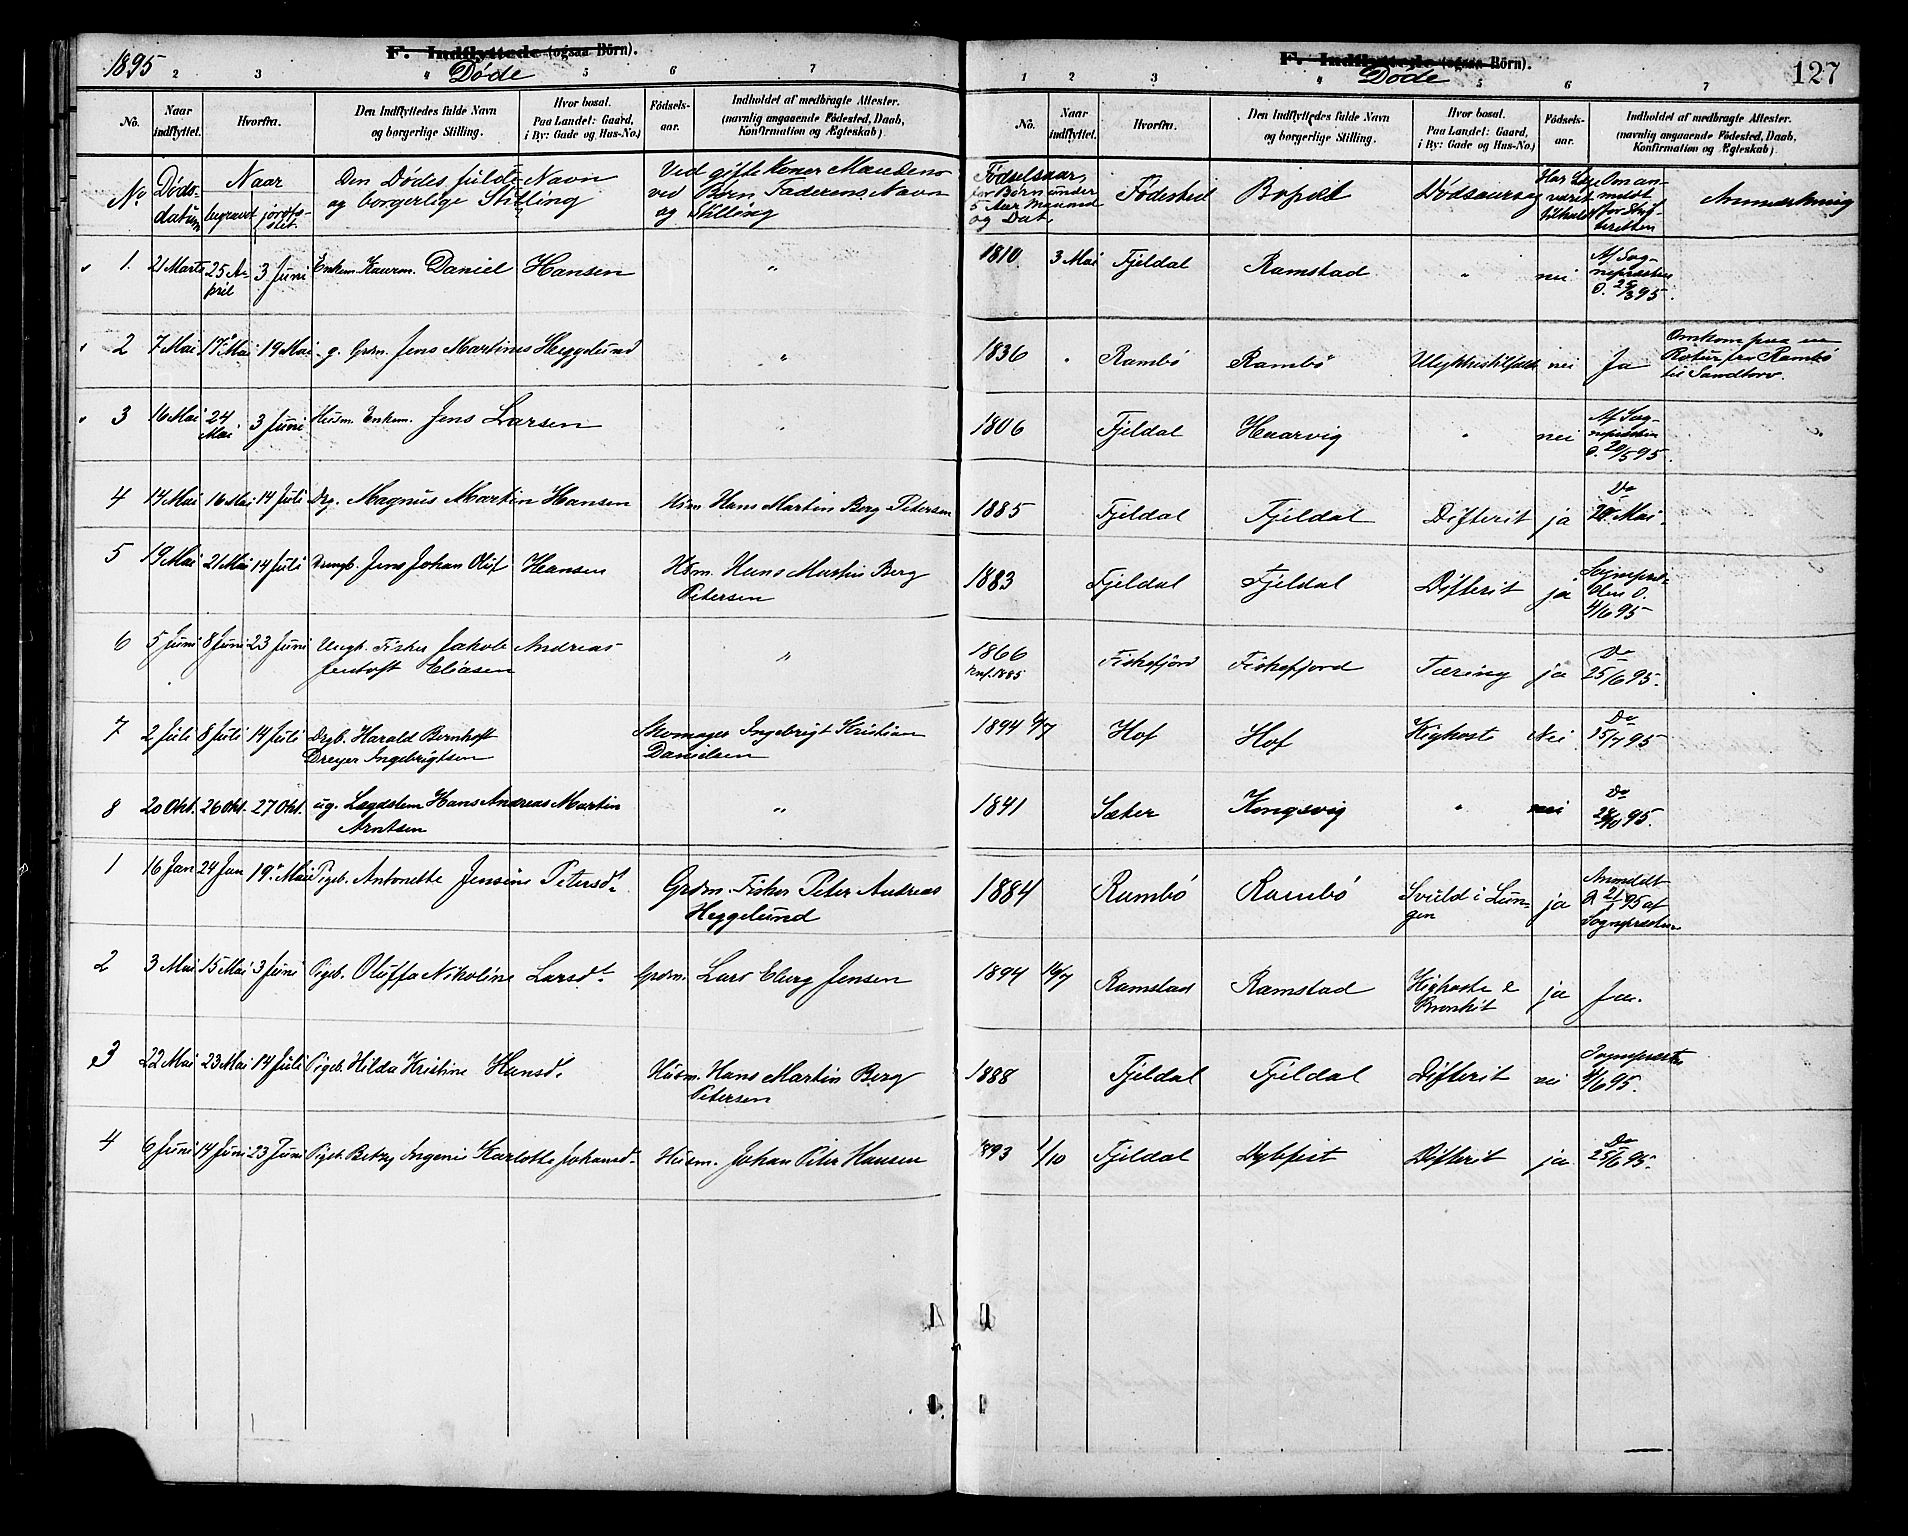 1895
F. Indflyttede (ogsaa Börn).
Døde
2 3 4 5 6 7
No. Naar indflyttet. Hvorfra. Den Indflyttedes fulde Navn og borgerlige Stilling. Hvor bosat. Paa Landet: Gaard, i By: Gade og Hus-No.) Födsels-aar. Indholdet af medbragte Attester. (navnlig angaaende Födested, Daab, Konfirmation og Ægteskab.)
No Døds-datum Naar begravet jordfæstet. Den Dødes fulde Navn og borgerlige Stilling Ved gifte Koner Mandens ved Børn Faderens Navn og Stilling
1. 21 Marts 25 April 3 Juni Enkem. Daniel Hansen "
2 7 Mai 17 Mai 19 Mai g. Grdm. Jens Martinus Heggelund "
3 16 Mai 24 Mai 3 Juni Husm. Enkem. Jens Larsen "
4 14 Mai 16 Mai 14 Juli Drg. Magnus Martin Hansen Hsm Hans Martin Berg Petersen
5 19 Mai 21 Mai 14 Juli Drengb. Jens Johan Oluf Hansen Hsm. Hans Martin Berg Petersen
6 5 Juni 8 Juni 23 Juni Ungk. Fisker Jakob Andreas Jentoft Eliasen "
7 2 Juli 8 Juli 14 Juli Drgb. Harald Bernhoft Dreyer Ingebrigtsen Skomager Ingebrigt Kristian Danielsen
8 20 Okt. 26 Okt. 27 Okt. ug. Lægdslem Hans Andreas Martin Arntsen "
1 16 Jan 24 Jan 19 Mai Pigeb. Antonette Jensine Petersd. Grdm. Fisker Peter Andreas Heggelund
2 3 Mai 15 Mai 3 Juni Pigeb. Oluffa Nikoline Larsd. Grdm. Lars Eberg Jensen
3 22 Mai 23 Mai 14 Juli Pigeb. Hilda Kristine Hansd. Husm. Hans Martin Berg Petersen
4 6 Juni 14 Juni 23 Juni Pigeb. Betzy Ingenie Karlotte Johansd. Husm. Johan Peter Hansen
F. Indflyttede (ogsaa Börn).
Døde
127
1 2 3 4 5 6 7
No. Naar indflyttet. Hvorfra. Den Indflyttedes fulde Navn og borgerlige Stilling. Hvor bosat. Paa Landet: Gaard, i By: Gade og Hus-No.) Födsels-aar. Indholdet af medbragte Attester. (navnlig angaaende Födested, Daab, Konfirmation og Ægteskab.)
Fødselsaar, for Børn under 5 Aar Maaned og Dat. Fødested Bopæl Dødsaarsag Har Læge været tilkaldt Om anmeldt for Skifteretten Anmærkning
1810 3 Mai Fjeldal Ramstad " nei Af Sognepræsten d. 25/3 95.
1836 " Rambø Rambø Ulykkestilfælde nei Ja Omkom paa en Rotur fra Rambø til Sandtorv.
1806 Fjeldal Haarvig " nei Af Sognepræsten d. 29/5 95.
1885 Fjeldal Fjeldal Difterit ja Do 20 Mai.
1883 Fjeldal Fjeldal Difterit ja d. 4/6 95
1866 Fiskefjord Fiskefjord Tæring ja Do 25/6 95.
1894 6/7 Hof Hof Kighoste Nei Do 15/7 95
1841 Sæter Kongsvig " nei Do 28/10 95.
1884 Rambø Rambø Svuld i Lungen ja Anmeldt d 21/1 95 af Sognepræsten
1894 16/7 Ramstad Ramstad Kighoste & Bronkit ja Ja.
1888 Fjeldal Fjeldal Difterit nei Sognepræsten 4/6 95.
1893 1/10 Fjeldal Dybfest Difterit ja Do 25/6 95.